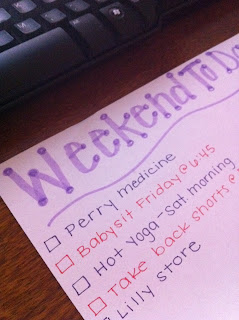 Weekend To Do
Perry medicine
Babysit Friday @ 6:45
Hot Yoga - Sat. morning
Take back shorts @
Lilly store